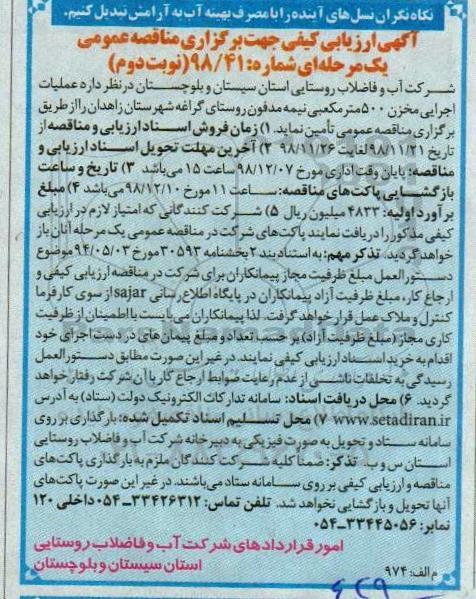 نگاه نگران نسل های آینده را با مصرف بهینه آب به آرامش تبدیل کنیم.
آگهی ارزیابی کیفی جهت برگزاری مناقصه عمومی
یک مرحله ای شماره: ۹۸/۴۱ (نوبت دوم)
شرکت آب و فاضلاب روستایی استان سیستان و بلوچستان در نظر دارد عملیات
اجرایی مخزن ۵۰۰ متر مکعبی نیمه مدفون روستای گراغه شهرستان زاهدان را از طریق
برگزاری مناقصه عمومی تأمین نماید. ۱) زمان فروش اسناد ارزیابی و مناقصه از
تاریخ ۹۸/۱۱/۲۱ لغایت ۹۸/۱۱/۲۶ ۲) آخرین مهلت تحویل اسناد ارزیابی و
مناقصه: پایان وقت اداری مورخ ۹۸/۱۲/۰۷ ساعت ۱۵ می باشد ۳) تاریخ و ساعت
بازگشایی پاکت های مناقصه: ساعت ۱۱ مورخ ۹۸/۱۲/۱۰ می باشد ۴) مبلغ
برآورد اولیه: ۴۸۳۳ میلیون ریال ۵) شرکت کنندگانی که امتیاز لازم در ارزیابی
کیفی مذکور را دریافت نمایند پاکت های شرکت در مناقصه عمومی یک مرحله آنان باز
خواهد گردید. تذکر مهم: به استناد بند ۲ بخشنامه ۳۰۵۹۳ مورخ ۹۴/۰۵/۰۳ موضوع
دستورالعمل مبلغ ظرفیت مجاز پیمانکاران برای شرکت در مناقصه ارزیابی کیفی و
ارجاع کار، مبلغ ظرفیت آزاد پیمانکاران در پایگاه اطلاع رسانی sajar از سوی کارفرما
کنترل و ملاک عمل قرار خواهد گرفت. لذا پیمانکاران می بایست با اطمینان از ظرفیت
کاری مجاز (مبلغ ظرفیت آزاد) بر حسب تعداد و مبلغ پیمان های در دست اجرای خود
اقدام به خرید اسناد ارزیابی کیفی نمایند. در غیر این صورت مطابق دستورالعمل
رسیدگی به تخلفات ناشی از عدم رعایت ضوابط ارجاع کار با آن شرکت رفتار خواهد
گردید. ۶) محل دریافت اسناد: سامانه تدارکات الکترونیک دولت (ستاد) به آدرس
www.setadiran.ir ۷) محل تسلیم اسناد تکمیل شده: بارگذاری بر روی
سامانه ستاد و تحویل به صورت فیزیکی به دبیرخانه شرکت آب و فاضلاب روستایی
استان س و ب. تذکر: ضمنا کلیه شرکت کنندگان ملزم به بارگذاری پاکت های
مناقصه و ارزیابی کیفی بر روی سامانه ستاد می باشند. در غیر این صورت پاکت های
آنها تحویل و بازگشایی نخواهد شد. تلفن تماس: ۳۳۴۲۶۳۱۲-۰۵۴ داخلی ۱۲۰
نمابر: ۳۳۴۴۵۰۵۶-۰۵۴
امور قراردادهای شرکت آب و فاضلاب روستایی
استان سیستان و بلوچستان
م الف: ۹۷۴